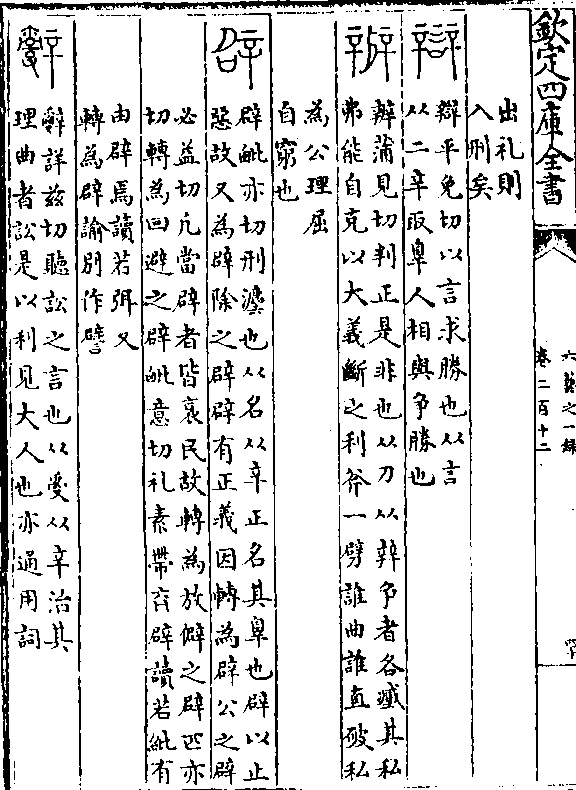 欽定四庫全書
六藝之一錄
卷二百十二
出礼則
入刑矣
辯平免切以言求勝也从言
从二辛取辠人相與争勝也
辦蒲見切判正是非也从刀从辡争者各其私
弗能自克以大義斷之利斧一劈誰曲誰直破私
為公理屈
自窮也
辟毗亦切刑灋也从名从辛正名其辠也辟以止
惡故又為辟除之辟辟有正義因轉為辟公之辟
必益切凡當辟者皆衺民故轉為放僻之辟匹亦
切轉為回避之辟毗意切礼素帶斉辟讀若紕有
由辟焉讀若弭又
轉為辟諭别作譬
辭詳兹切聽訟之言也从𤔔从辛治其
理曲者訟是以利見大人也亦通用詞